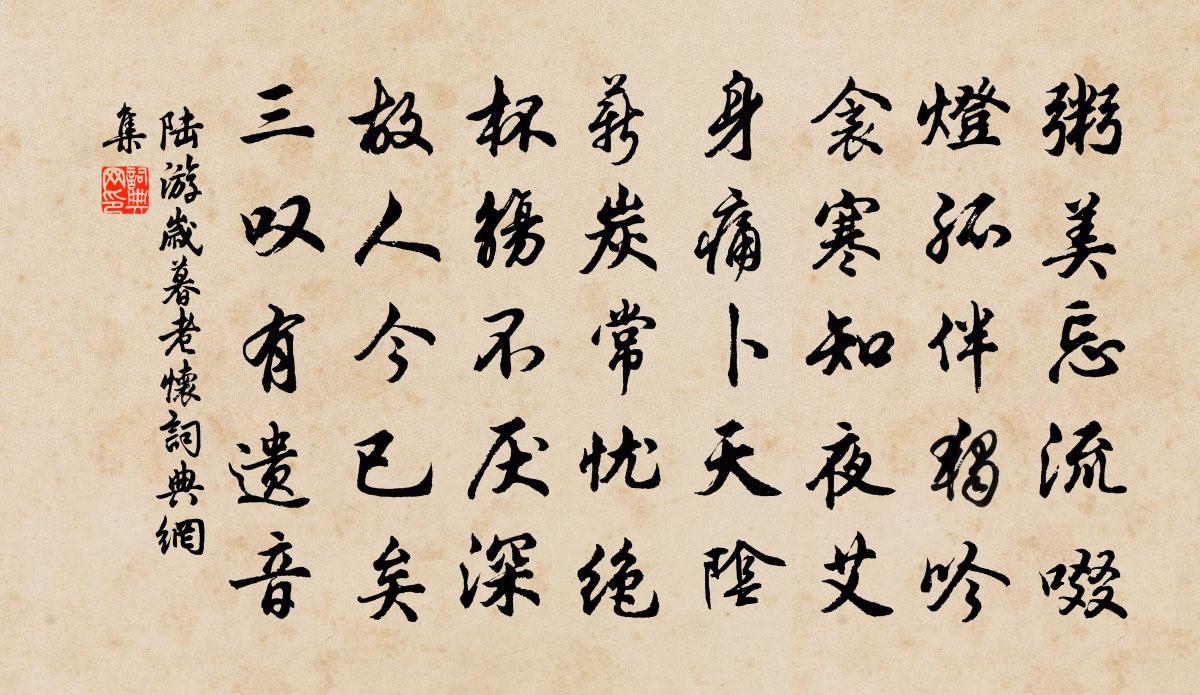 粥美忘流啜
燈孤伴獨吟
衾寒知夜艾
身痛卜天陰
薪炭常忧绝
杯觴不厌深
故人今已矣
三叹有遗音
陆游歲暮老懷詞典網
集
詞典
网印